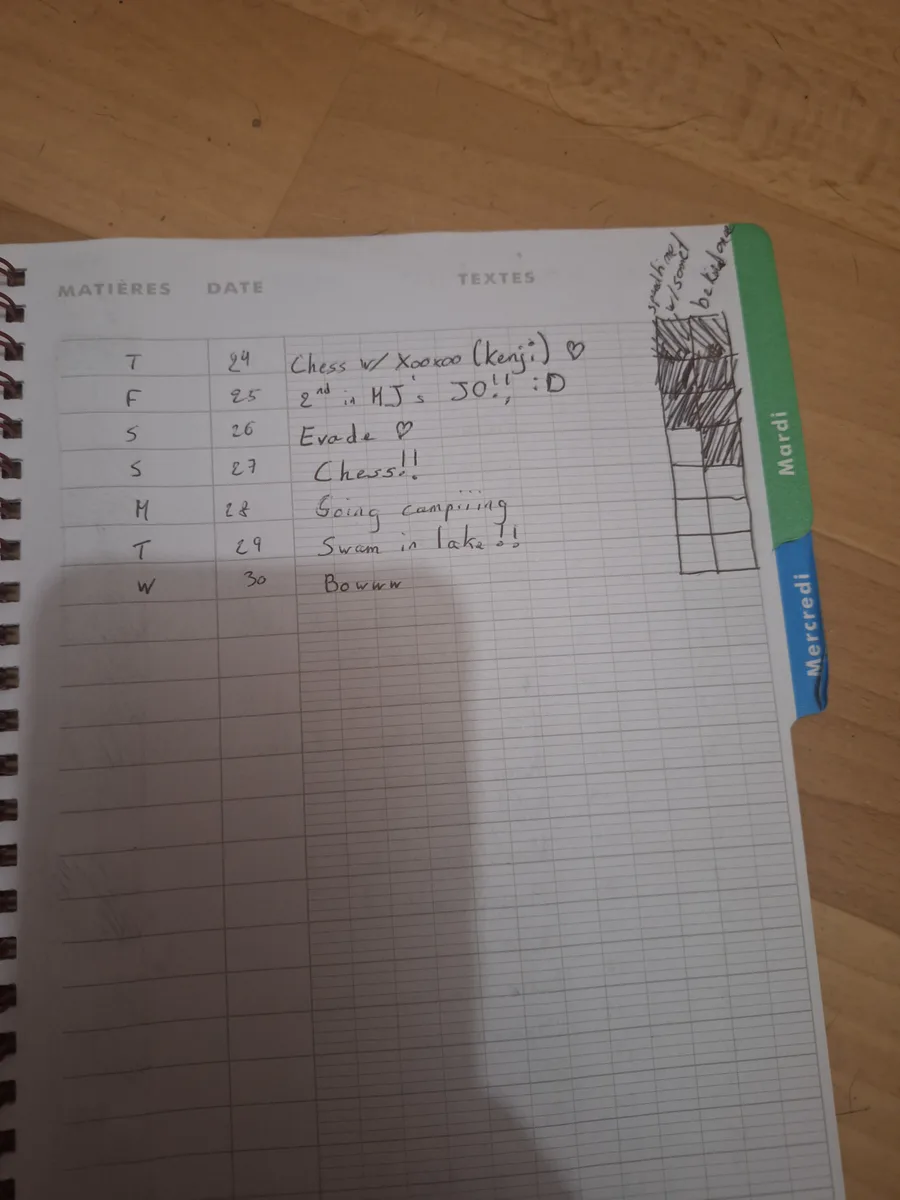 MATIÈRES DATE TEXTES
be kind
T 24 Chess w/ Xooxoo (Kenji) ♡
F 25 2nd in MJ's JO!!, :D
S 26 Evade ♡
S 27 Chess!!
M 28 Going campiiing
T 29 Swam in lake!!
W 30 Bowww
Mardi
Mercredi